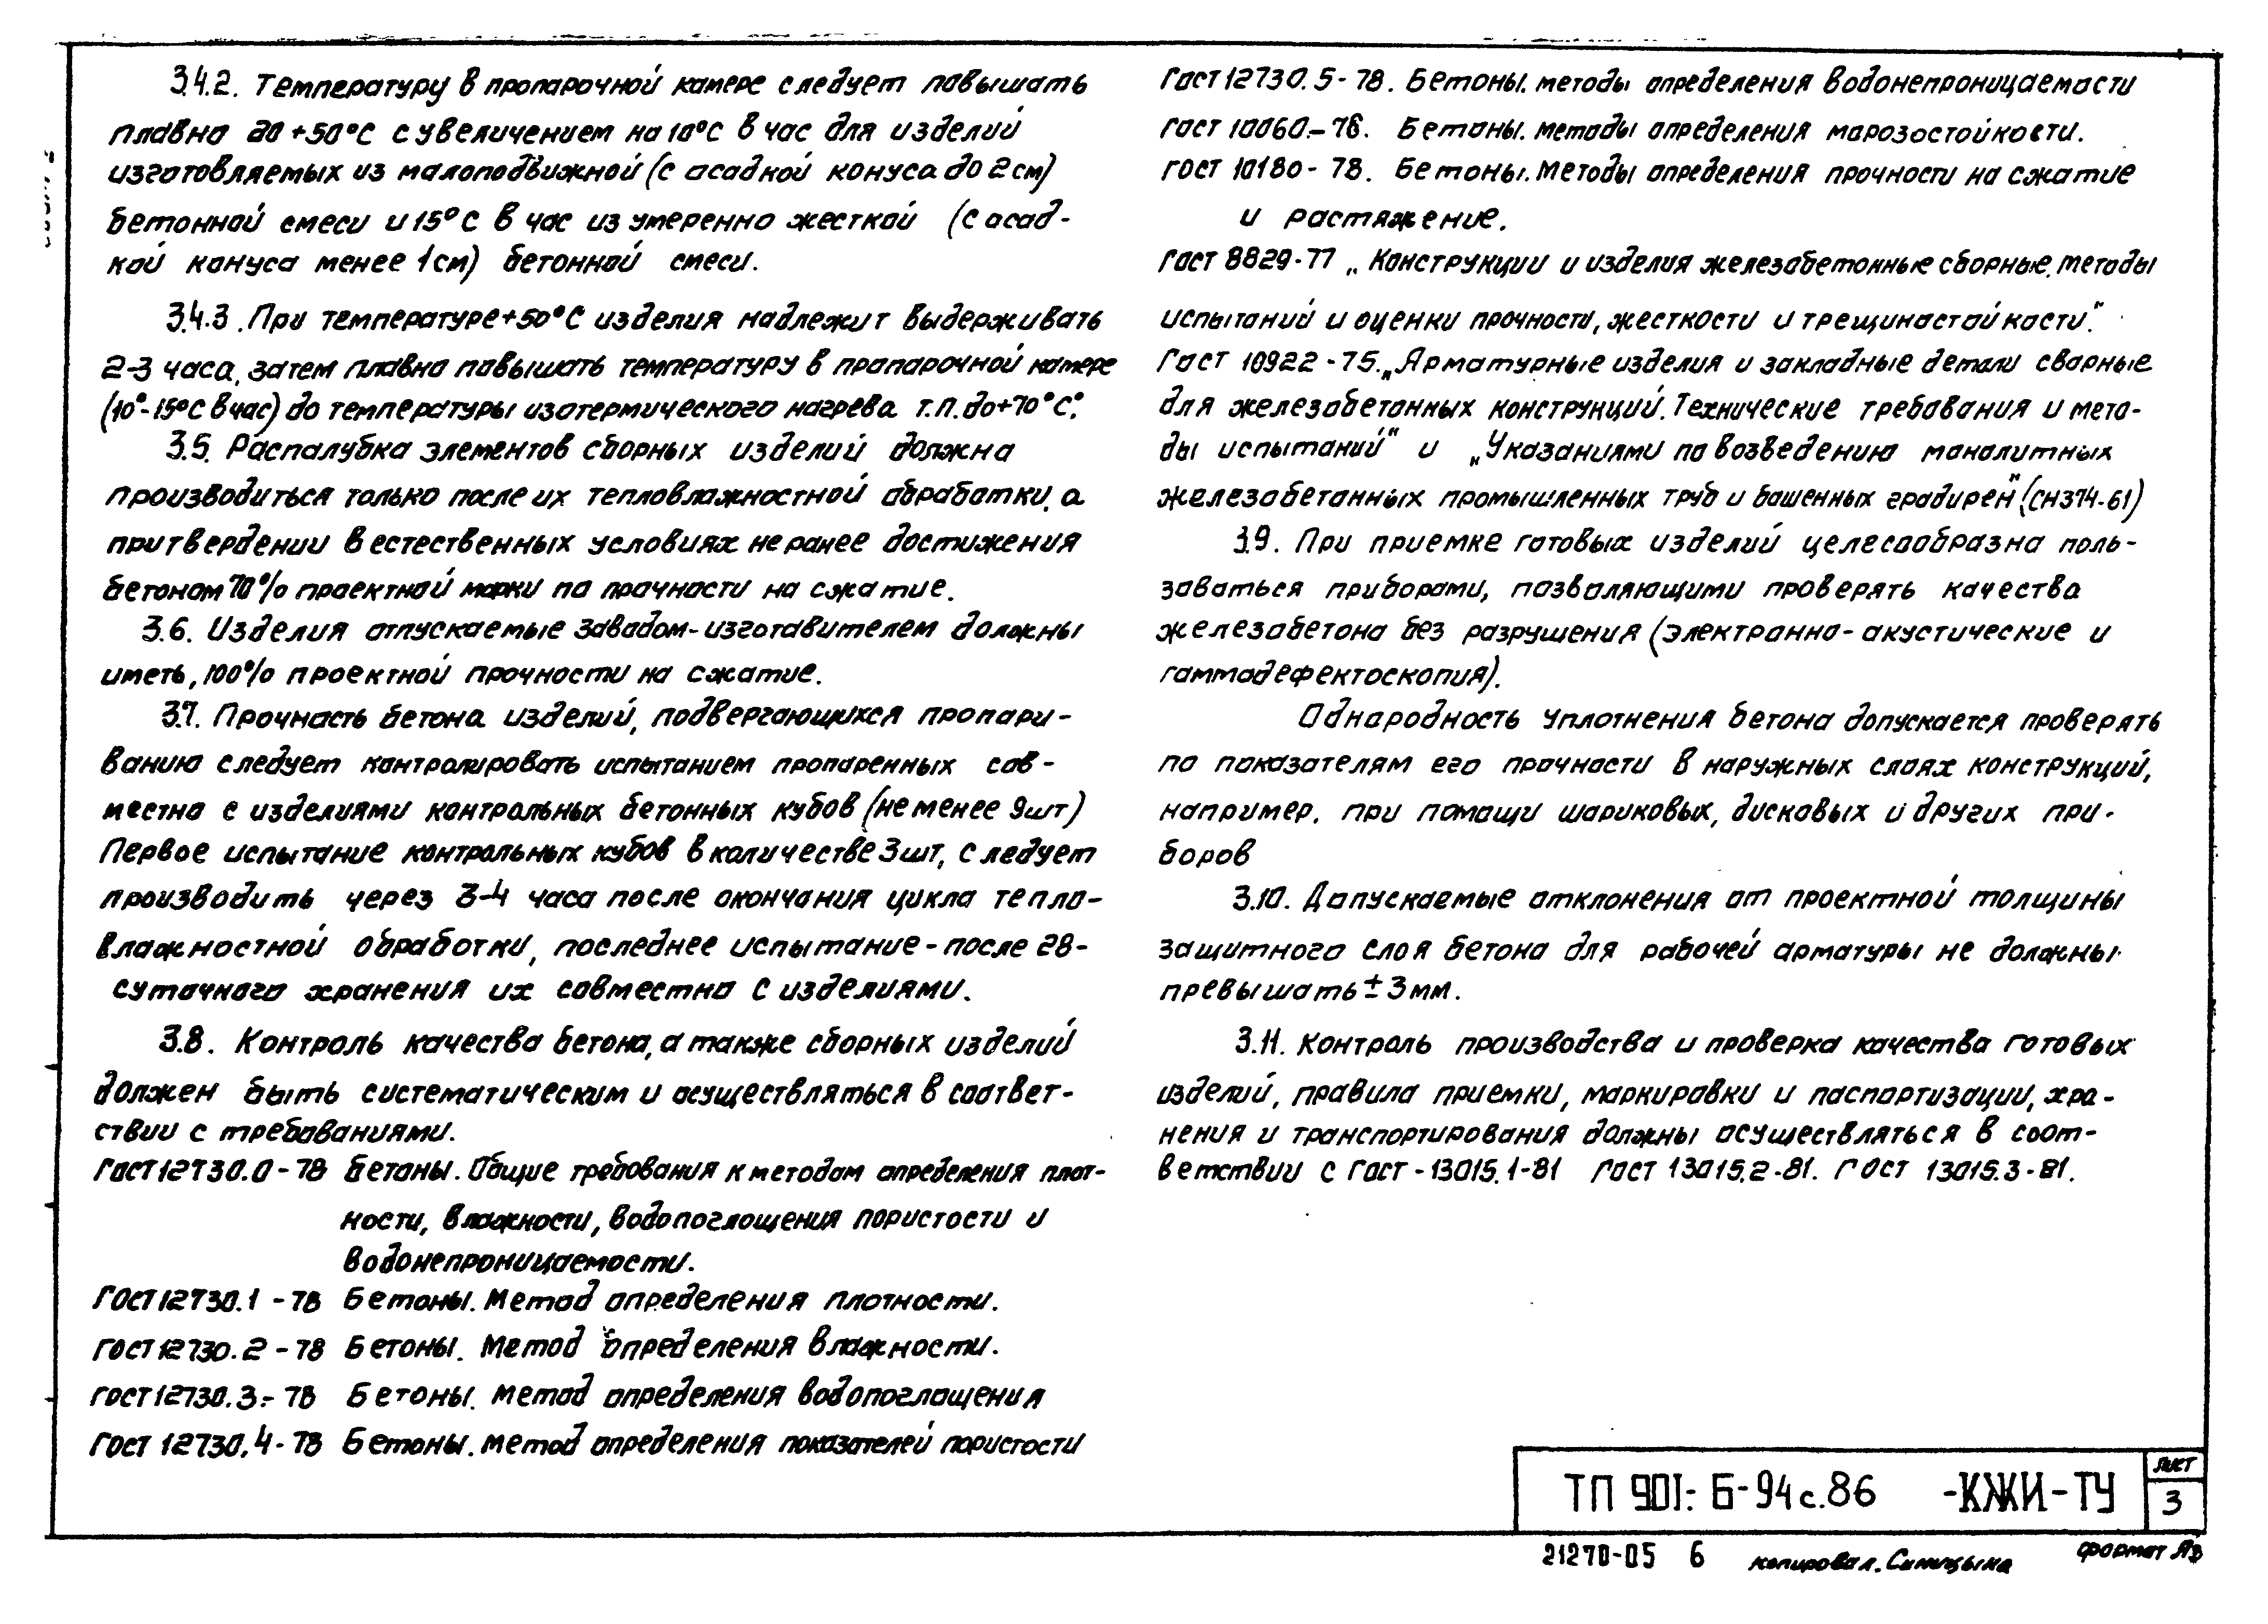 3.4.2. Температуру в пропарочной камере следует повышать
плавно 20 +50°С с увеличением на 10°С в час для изделий
изготовляемых из малоподвижной (с осадкой конуса до 2 см)
бетонной смеси и 15°С в час из умеренно жесткой (с осад-
кой конуса менее 1 см) бетонной смеси.
3.4.3. При температуре +50°С изделия надлежит выдерживать
2-3 часа, затем плавно повышать температуру в пропарочной камере
(10°-15°С в час) до температуры изотермического нагрева т.п. до +70°С.
3.5. Распалубка элементов сборных изделий должна
производиться только после их тепловлажностной обработки, а
при твердении в естественных условиях не ранее достижения
бетоном 70% проектной марки по прочности на сжатие.
3.6. Изделия отпускаемые заводом-изготовителем должны
иметь, 100% проектной прочности на сжатие.
3.7. Прочность бетона изделий, подвергающихся пропари-
ванию следует контролировать испытанием пропаренных сов-
местно с изделиями контрольных бетонных кубов (не менее 9 шт)
Первое испытание контрольных кубов в количестве 3 шт, следует
производить через 3-4 часа после окончания цикла тепло-
влажностной обработки, последнее испытание - после 28-
суточного хранения их совместно с изделиями.
3.8. Контроль качества бетона, а также сборных изделий
должен быть систематическим и осуществляться в соответ-
ствии с требованиями.
ГОСТ 12730.0-78 Бетоны. Общие требования к методам определения плот-
ности, влажности, водопоглощения пористости и
водонепроницаемости.
ГОСТ 12730.1-78 Бетоны. Метод определения плотности.
ГОСТ 12730.2-78 Бетоны. Метод определения влажности.
ГОСТ 12730.3-78 Бетоны. Метод определения водопоглощения
ГОСТ 12730.4-78 Бетоны. Метод определения показателей пористости
ГОСТ 12730.5-78. Бетоны. Методы определения водонепроницаемости
ГОСТ 10060-76. Бетоны. Методы определения морозостойкости.
ГОСТ 10180-78. Бетоны. Методы определения прочности на сжатие
и растяжение.
ГОСТ 8829-77 „Конструкции и изделия железобетонные сборные. Методы
испытаний и оценки прочности, жесткости и трещиностойкости".
ГОСТ 10922-75. „Арматурные изделия и закладные детали сварные
для железобетонных конструкций. Технические требования и мето-
ды испытаний" и „Указаниями по возведению монолитных
железобетонных промышленных труб и башенных градирен" (СН374-61)
3.9. При приемке готовых изделий целесообразно поль-
зоваться приборами, позволяющими проверять качество
железобетона без разрушения (электронно-акустические и
гаммадефектоскопия).
Однородность уплотнения бетона допускается проверять
по показателям его прочности в наружных слоях конструкций,
например, при помощи шариковых, дисковых и других при-
боров
3.10. Допускаемые отклонения от проектной толщины
защитного слоя бетона для рабочей арматуры не должны
превышать ± 3 мм.
3.11. Контроль производства и проверка качества готовых
изделий, правила приемки, маркировки и паспортизации, хра-
нения и транспортирования должны осуществляться в соот-
ветствии с ГОСТ-13015.1-81 ГОСТ 13015.2-81. ГОСТ 13015.3-81.
ТП 901-6-94с.86 -КЖИ-ТУ
лист
3
21270-05 6 копировал. Синицына формат А3